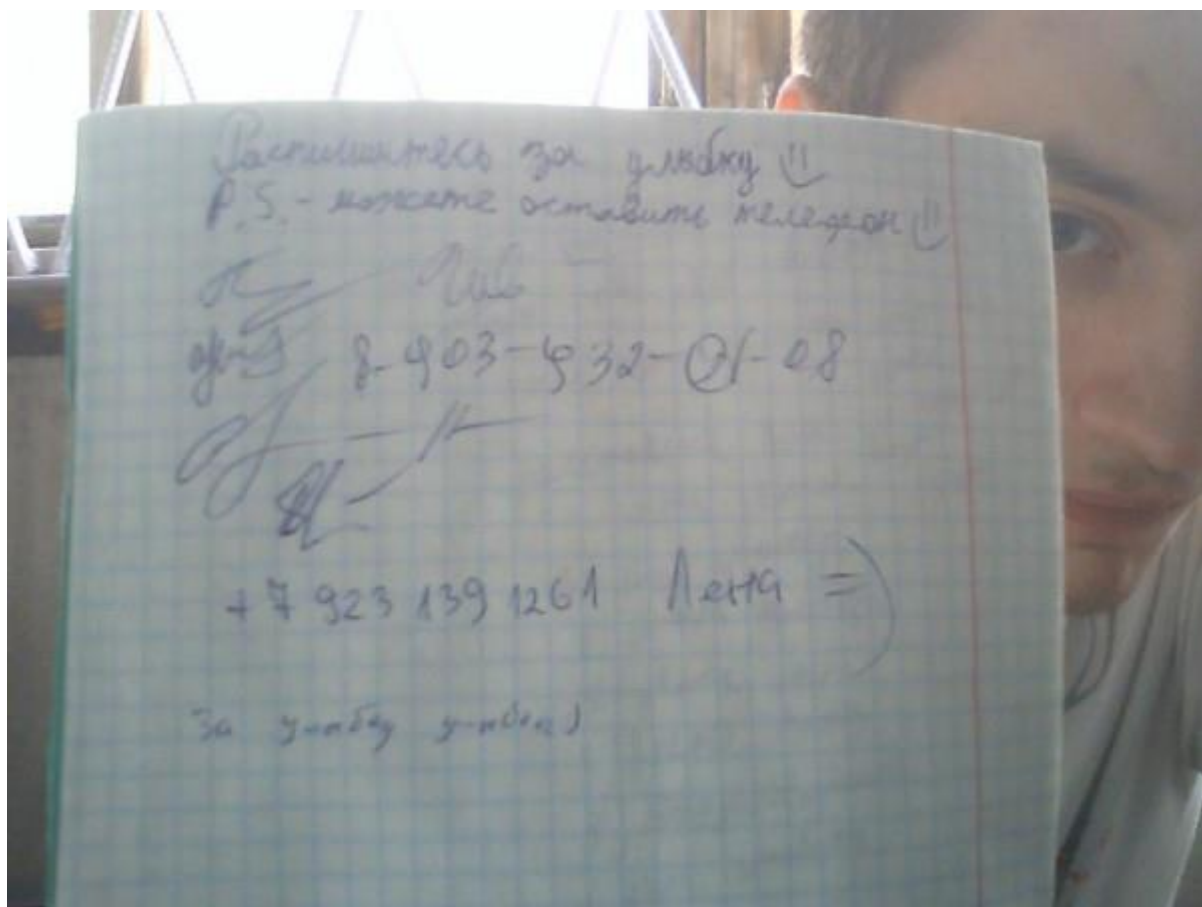 Распишитесь за улыбку
P.S. - можете оставить телефон
8-903-932-01-08
+7 923 139 1261 Лена =)
За улыбку улыбка)